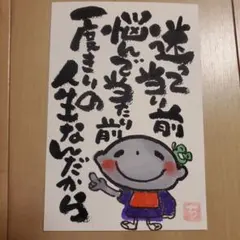 迷って当り前
悩んで当たり前
一度きりの
人生なんだから